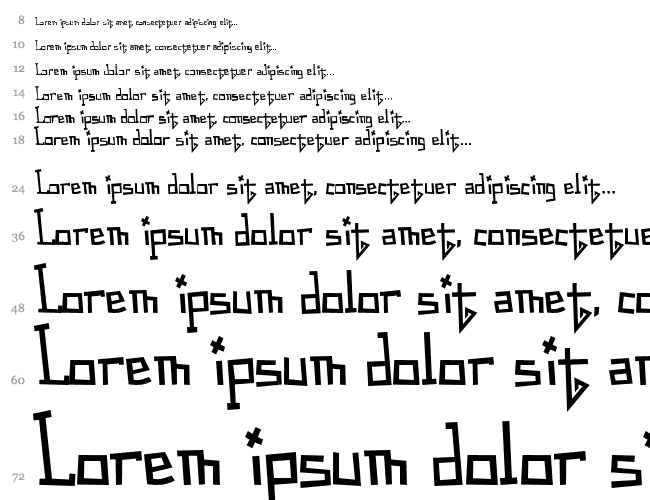 8 Lorem ipsum dolor sit amet, consectetuer adipiscing elit...
10 Lorem ipsum dolor sit amet, consectetuer adipiscing elit...
12 Lorem ipsum dolor sit amet, consectetuer adipiscing elit...
14 Lorem ipsum dolor sit amet, consectetuer adipiscing elit...
16 Lorem ipsum dolor sit amet, consectetuer adipiscing elit...
18 Lorem ipsum dolor sit amet, consectetuer adipiscing elit...
24 Lorem ipsum dolor sit amet, consectetuer adipiscing elit...
36 Lorem ipsum dolor sit amet, consectetue
48 Lorem ipsum dolor sit amet, co
60 Lorem ipsum dolor sit am
72 Lorem ipsum dolor s